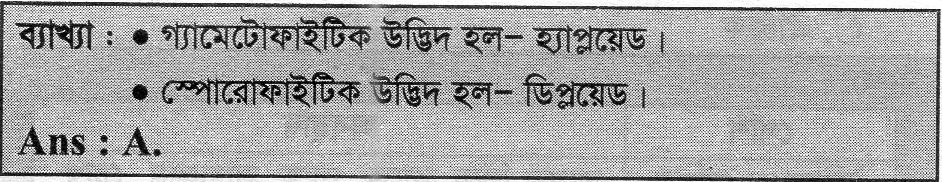 ব্যাখ্যা : ● গ্যামেটোফাইটিক উদ্ভিদ হল– হ্যাপ্লয়েড।
● স্পোরোফাইটিক উদ্ভিদ হল– ডিপ্লয়েড।
Ans : A.